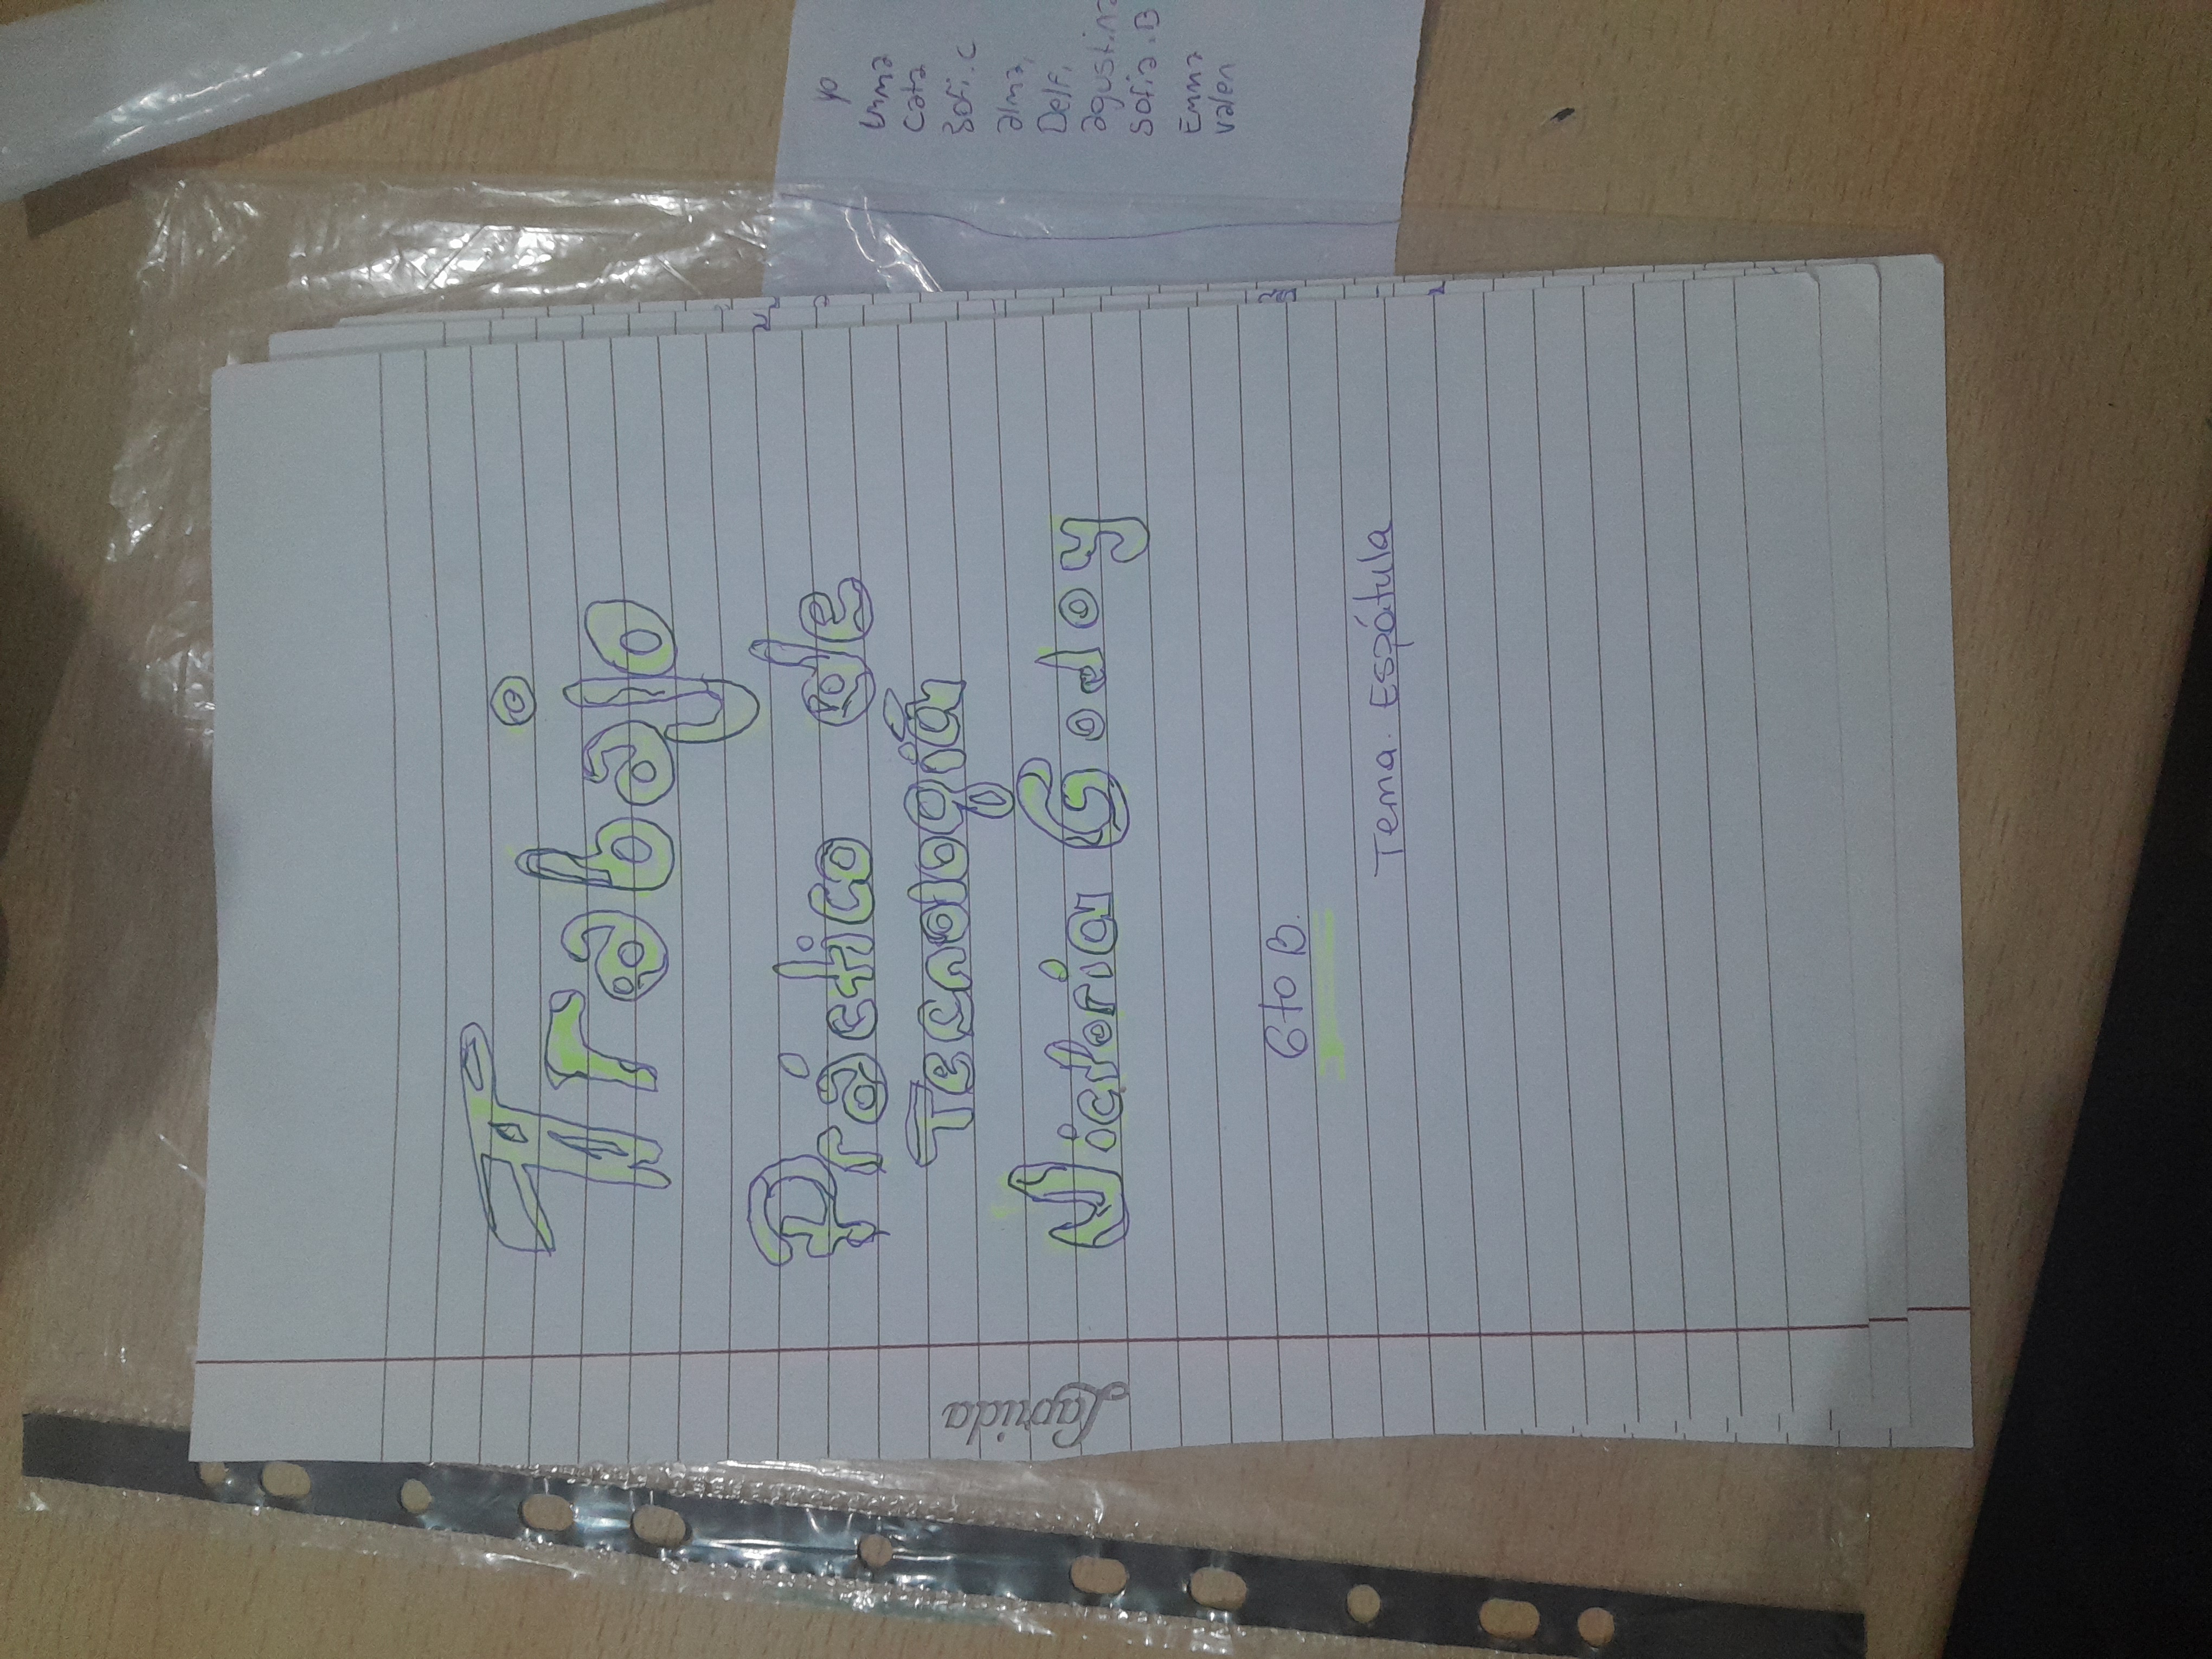 Trabajo
Práctico de
Tecnología
Victoria Godoy
6to B.
Tema. Espátula
Laprida
yo
Emma
Cata
Sofi. C
alma,
Delf,
agustina
Sofia. B
Emma
valen